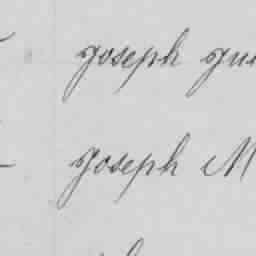 joseph
joseph M